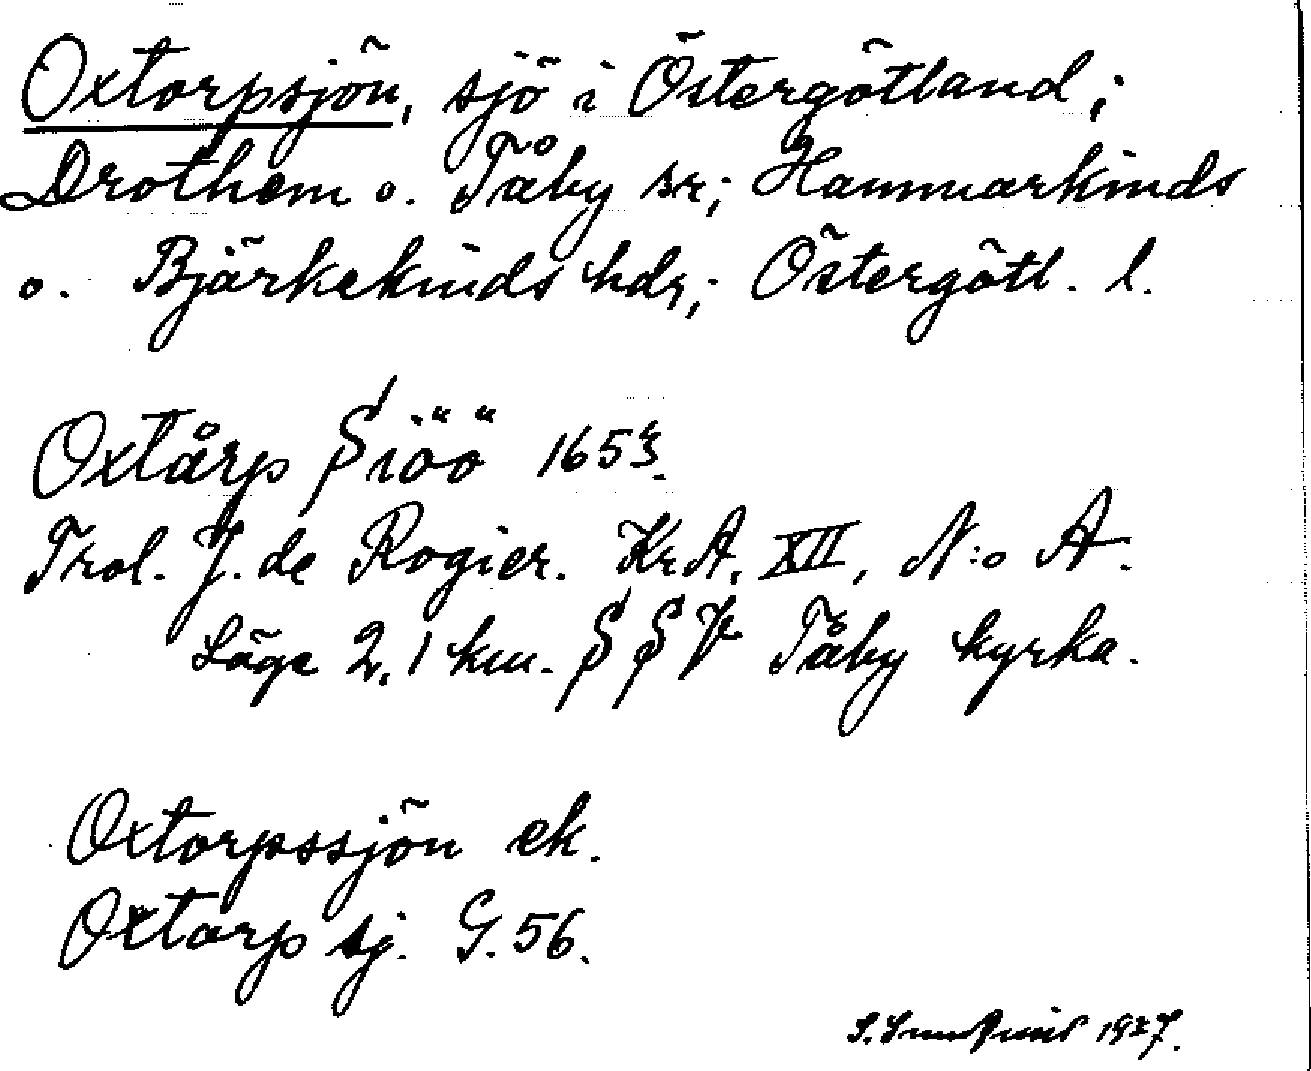 Oxtorpsjön, sjö i Östergötland;
Drothem o. Tåby sr; Hammarkinds
o. Björkekinds hdr; Östergötl. l.
Oxtårp Siöö 1653.
Trol. J. de Rogier. KrA. XII, N:o A.
Läge 2,1 km. SSV Tåby kyrka.
Oxtorpssjön ek.
Oxtorp sj. G. 56.
1927.